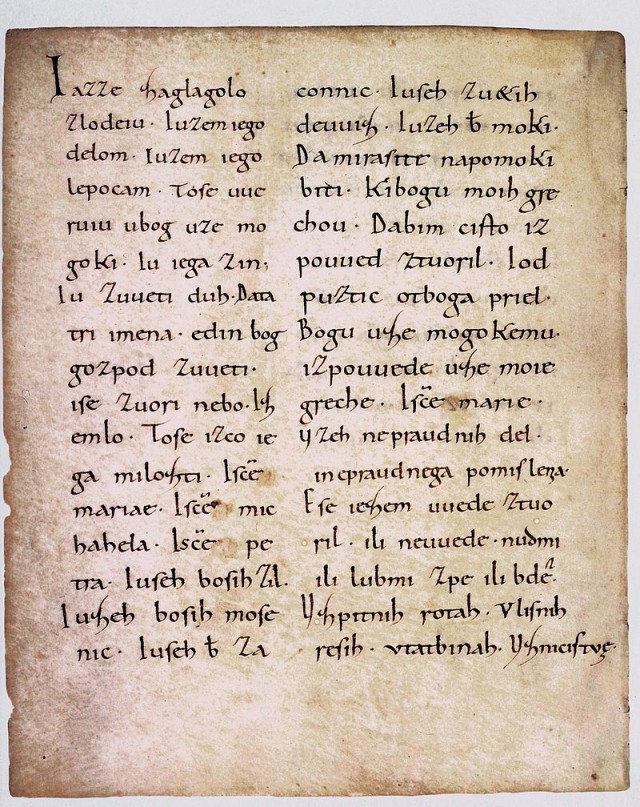 Iazze shaglagolo
zlodeiu. Iuzem iego
delom. Iuzem iego
lepocam. Tose uue
ruiu ubog uze mo
goki. Iu iega zin,
Iu zuueti duh. Data
tri imena. edin bog
gozpod zuueti.
ise zuori nebo. Ish
emlo. Tose izco ie
ga miloshti. Iscẽ
mariae. Iscẽ mic
hahela. Iscẽ pe
tra. Iuseh bosih zil.
Iusheh bosih mose
nic. Iuseh ƀ za
connic. Iuseh zu&ih
deuuish. Iuzeh ƀ moki.
Da mirasite napomoki
biti. Kibogu moih gre
chou. Dabim cisto iz
pouued ztuoril. Iod
puztic otboga priel.
Bogu ushe mogokemu.
izpouuede ushe moie
greche. Iscẽ marie.
Uzeh nepraudnih del.
inepraudnega pomislena.
Ese ieshem uuede ztuo
ril. ili neuuede. nudmi
ili lubmi zpe ili bdẽ.
Ushpitnih rotah. Vlisnih
resih. vtatbinah. Ushnicistvę.